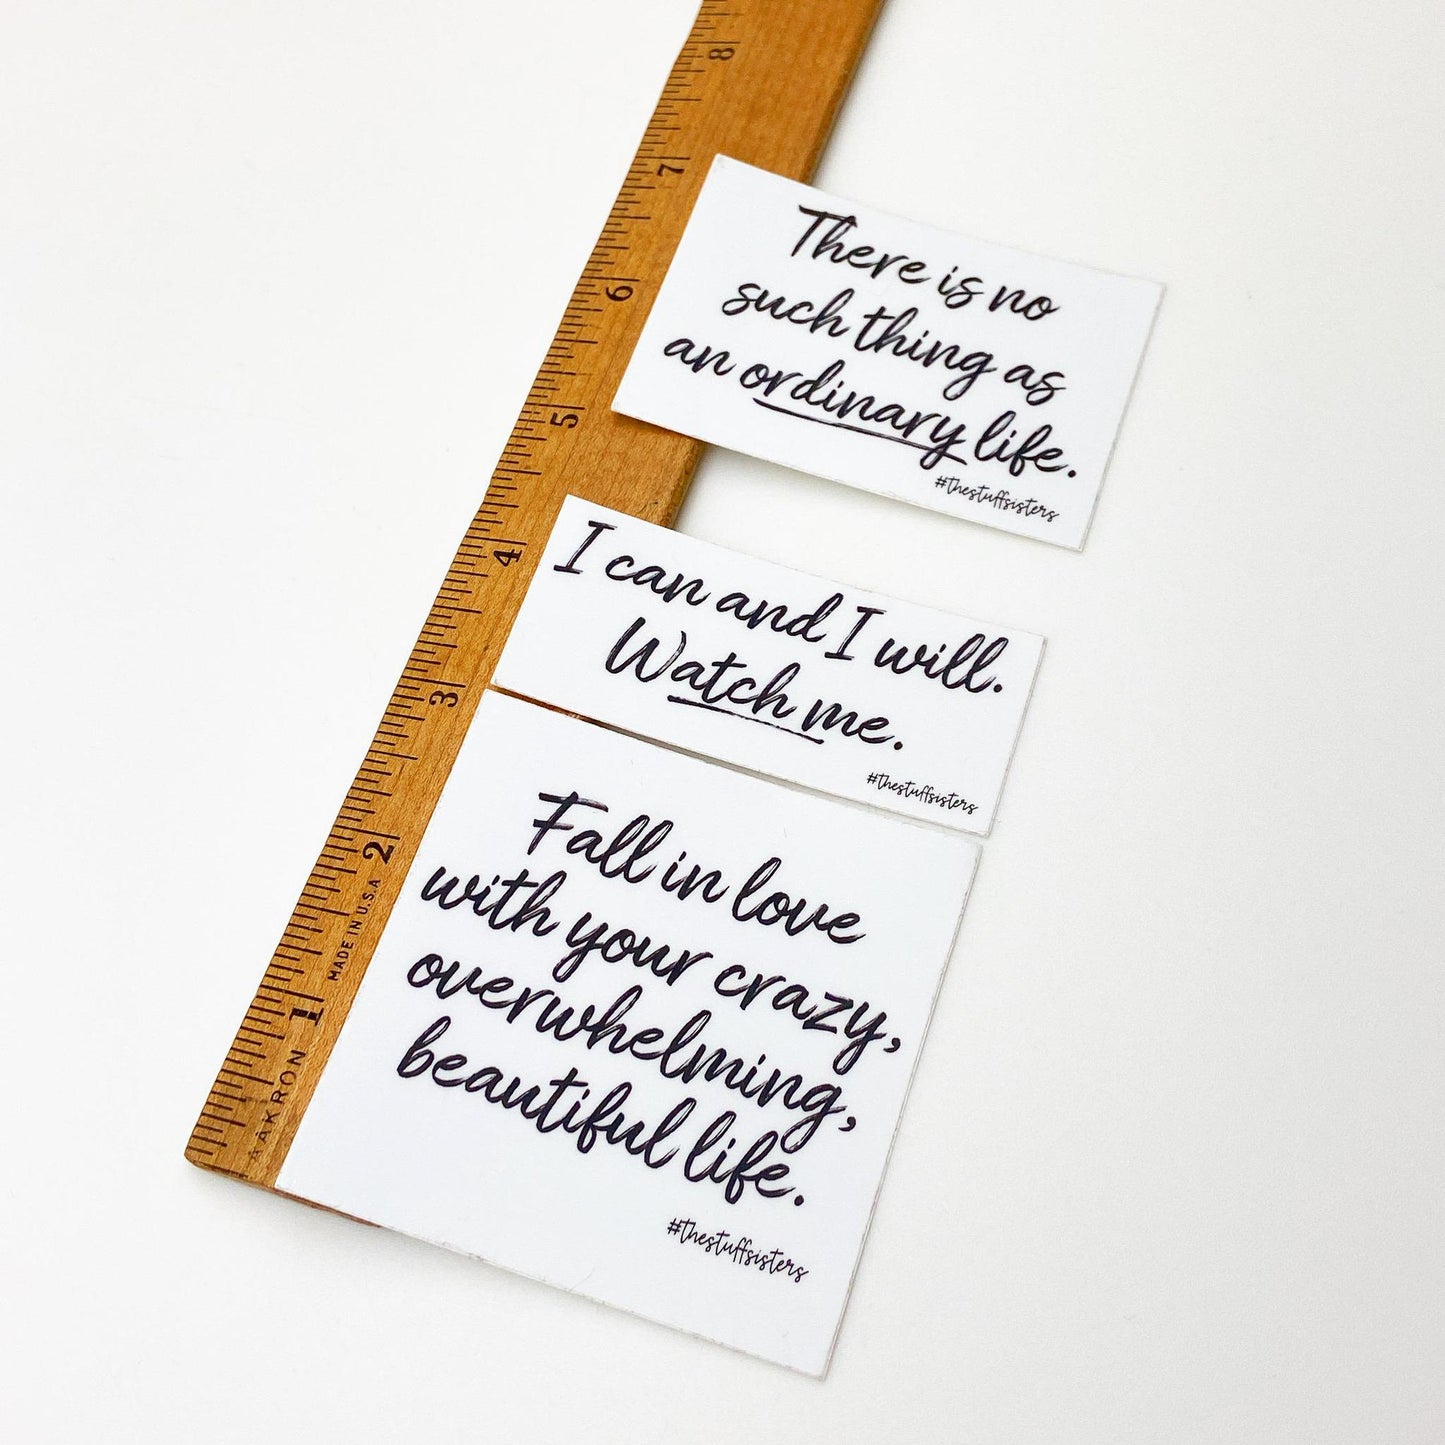 8
7
6
5
4
3
2
1
MADE IN U.S.A
AKRON
There is no
such thing as
an ordinary life.
#thestuffsisters
I can and I will.
Watch me.
#thestuffsisters
Fall in love
with your crazy,
overwhelming,
beautiful life.
#thestuffsisters